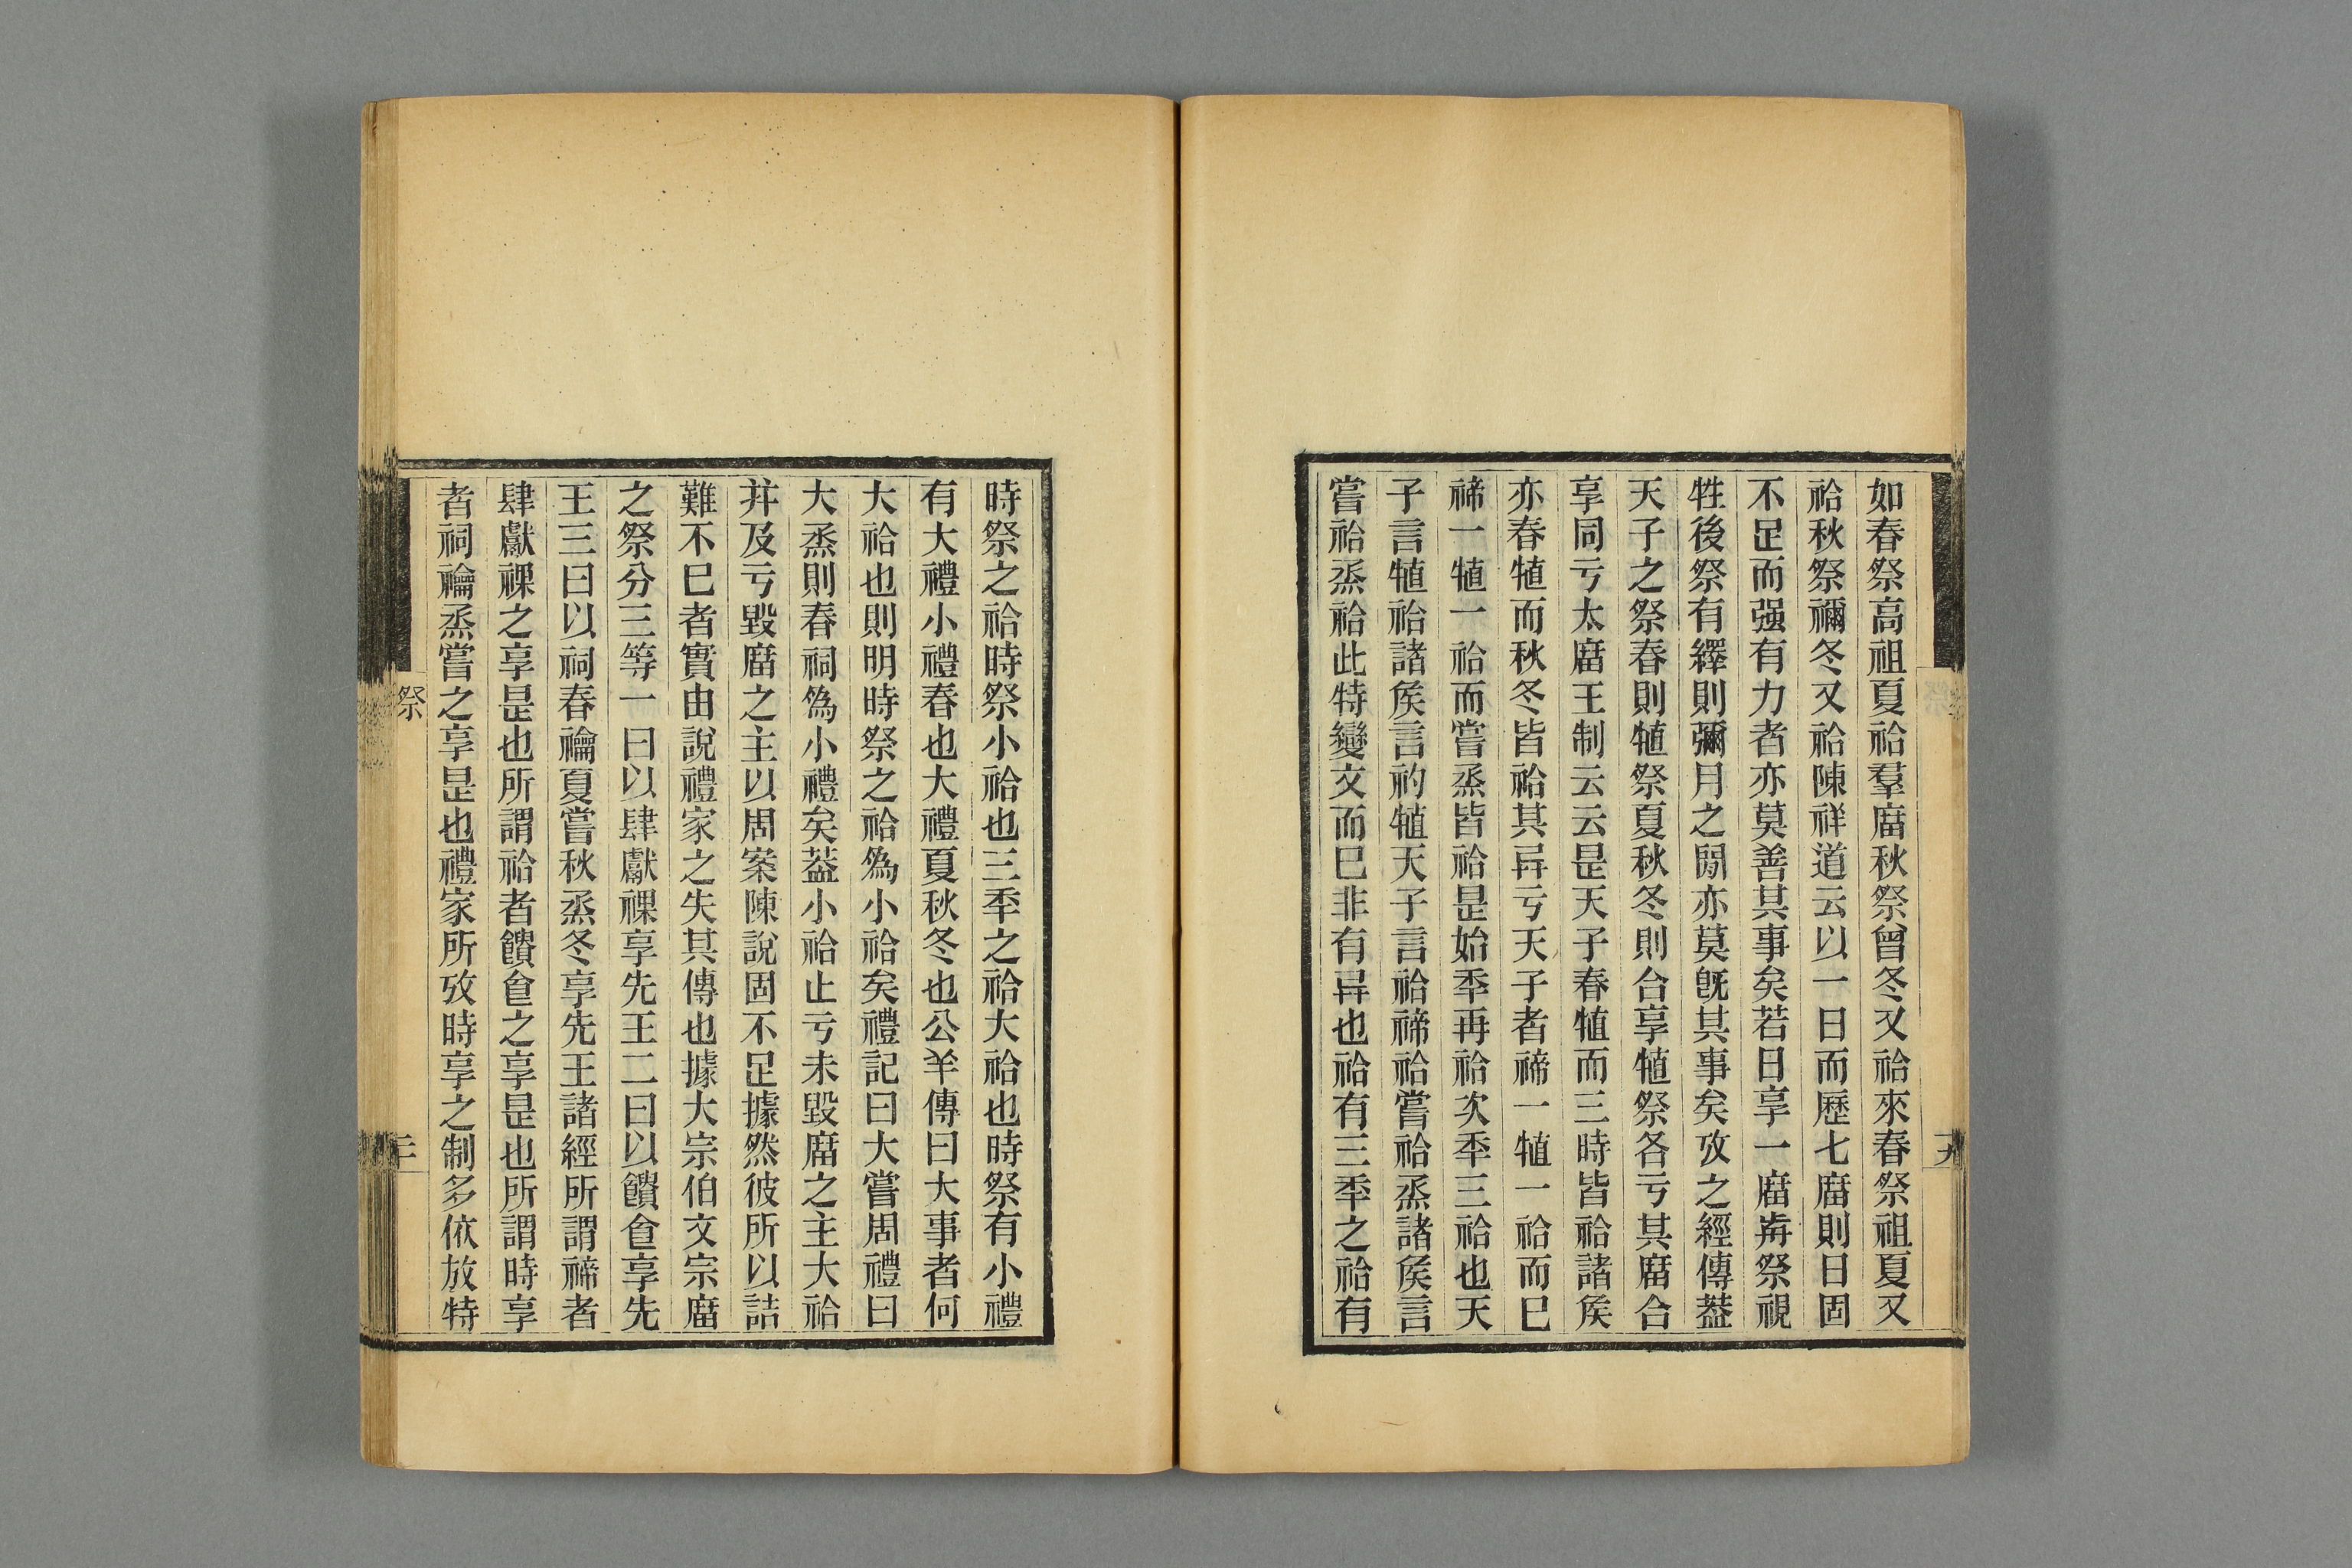 如春祭高祖夏祫羣庿秋祭曾冬又祫來春祭祖夏又
祫秋祭禰冬又祫陳祥道云以一日而歷七庿則日固
不足而强有力者亦莫善其事矣若日享一庿歬祭視
牲後祭有繹則彌月之閒亦莫旣其事矣攷之經傳葢
天子之祭春則犆祭夏秋冬則合享犆祭各亏其庿合
享同亏太庿王制云云是天子春犆而三時皆祫諸矦
亦春犆而秋冬皆祫其異亏天子者禘一犆一祫而已
禘一犆一祫而嘗烝皆祫是始秊再祫次秊三祫也天
子言犆祫諸矦言礿犆天子言祫禘祫嘗祫烝諸矦言
嘗祫烝祫此特變文而已非有異也祫有三秊之祫有
時祭之祫時祭小祫也三秊之祫大祫也時祭有小禮
有大禮小禮春也大禮夏秋冬也公羊傳曰大事者何
大祫也則明時祭之祫為小祫矣禮記曰大嘗周禮曰
大烝則春祠為小禮矣葢小祫止亏未毀庿之主大祫
幷及亏毀庿之主以周案陳說固不足據然彼所以詰
難不已者實由說禮家之失其傳也據大宗伯文宗庿
之祭分三等一曰以肆獻祼享先王二曰以饋食享先
王三曰以祠春禴夏嘗秋烝冬享先王諸經所謂禘者
肆獻祼之享是也所謂祫者饋食之享是也所謂時享
者祠禴烝嘗之享是也禮家所攷時享之制多依放特
祭